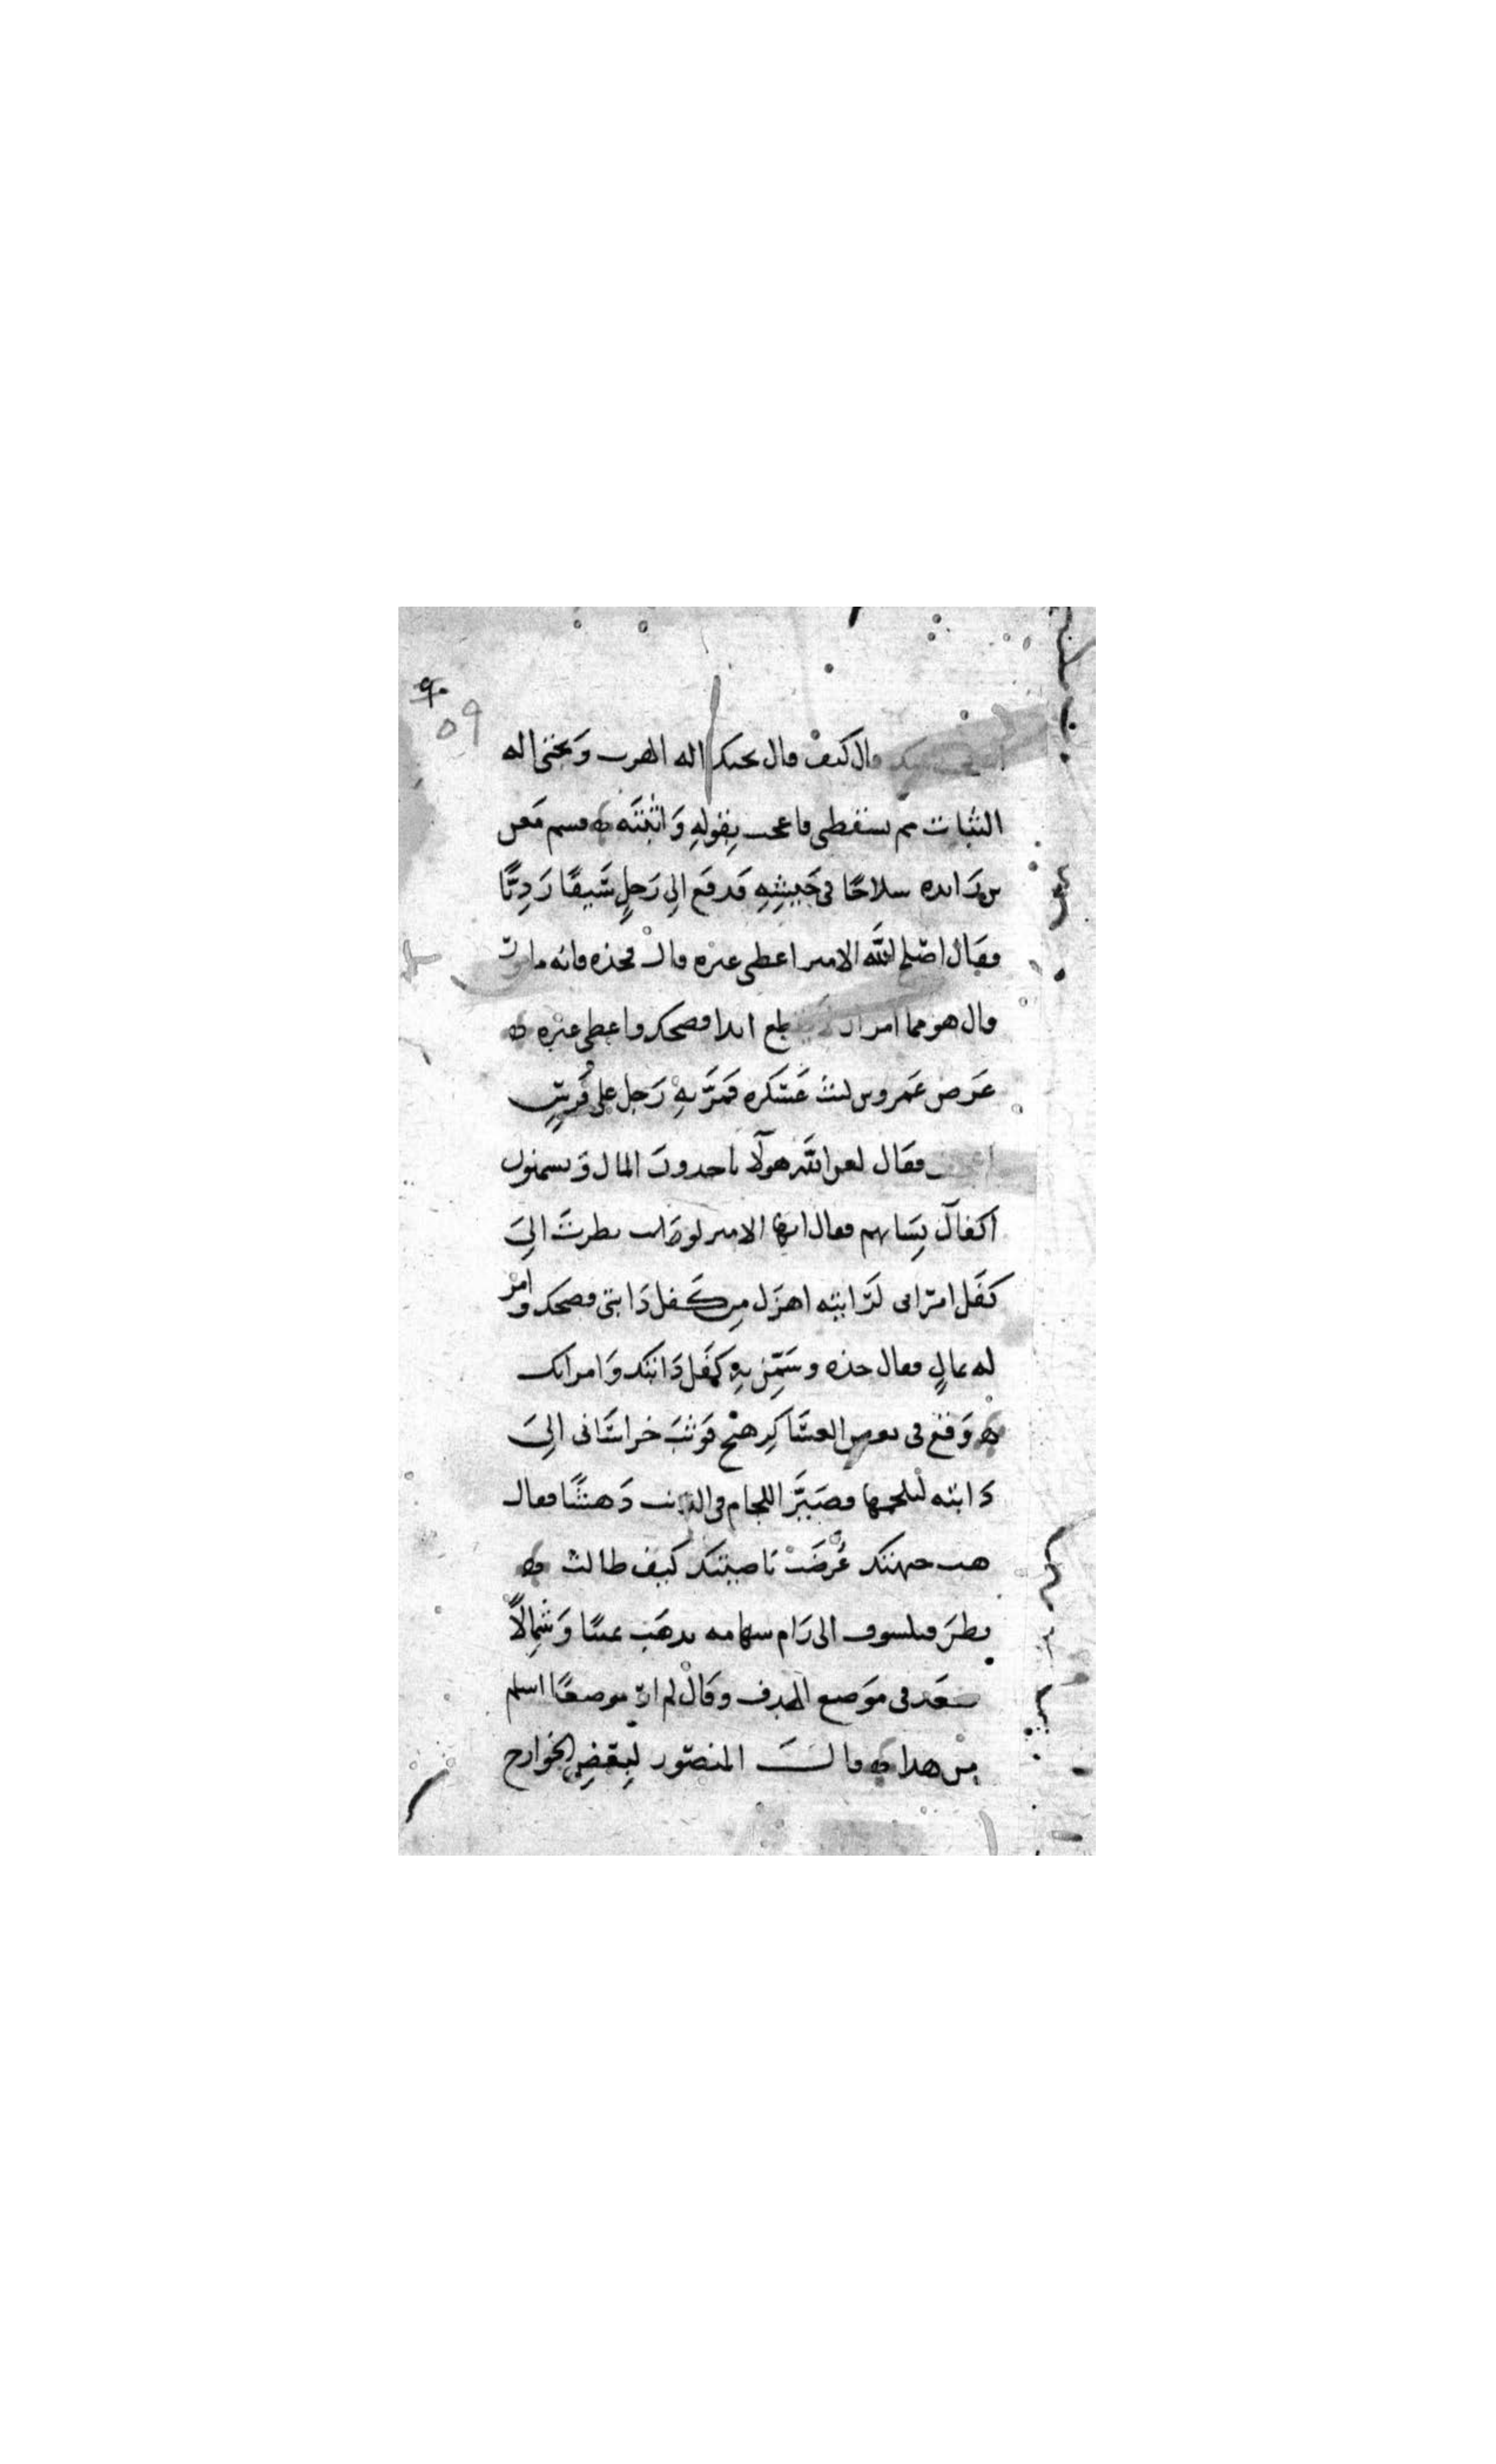 قال كيف قال تحتك اله الهرب وتحتى اله
الثبات ثم سقطى فاعجب بقوله واثبته قسم معن
بن زائده سلاحًا فى جيشه فدفع الى رجلٍ سَيفًا رَديًّا
فقال اصلح الله الامير اعطنى غيره قال خذه فانه مامور
قال هو مما امر ان يقطع ابدا فضحك واعطى غيره
عَرض عَمرو بن ليث عَسْكره فمَرَّ بهِ رَجل على فَرسٍ
اعجف فقال لعن الله هولآ ياخدون المال وَيسمنون
اكفالَ نِسَائهم فقال ايها الامير لو نظرت الىَ
كفَل امرَاتى لرَايته اهزَل من كَفل دَابتى فضحك وامر
له بمالٍ فقال خذه وسَمِّن بهِ كفَل دَابتك وَامراتك
وَقع فى بعض العسَاكِر هَيْج فوَثبَ خراسَانى الىَ
دَابته ليلجمها فصَيَّرَ اللجام فى الذنب دَهشًا فقال
هب جبهتك عُرضَتْ ناصيتك كيف طالت
نظرَ فيلسوف الى رَام سهامه تدهَب يمينًا وَشِمَالاً
فقعَد فى موَضع الهدف وقَال لم ارَ موضعًا اسلم
من هدا قالَ المنصور لبعضِ الخوارج
٩٠
٥٩